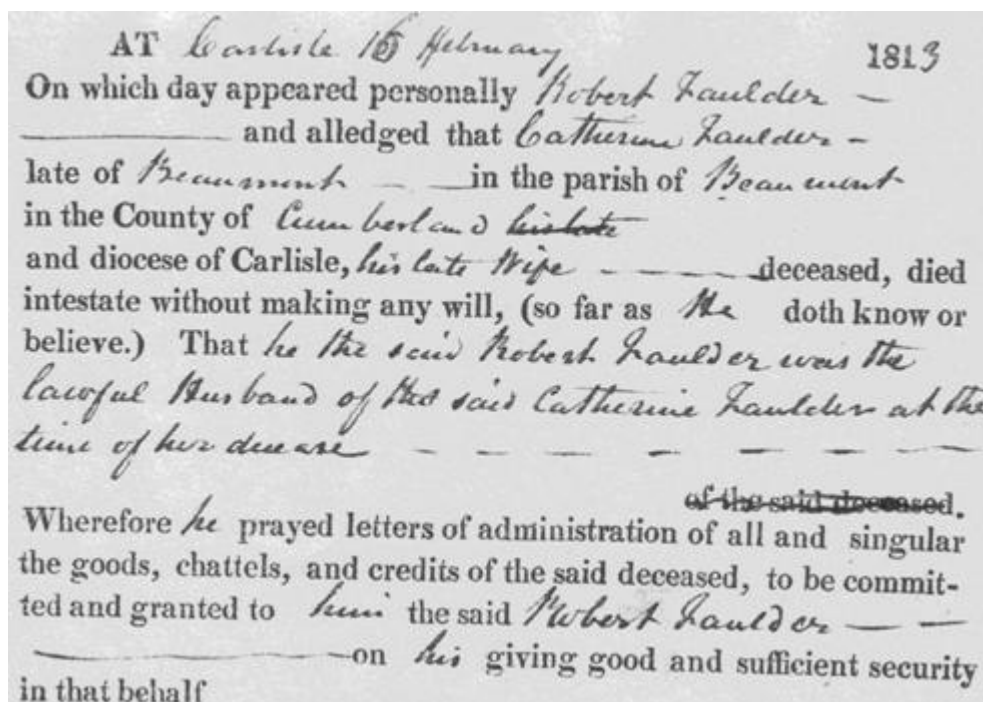 AT Carlisle 15 February 1813
On which day appeared personally Robert Faulder —
——— and alledged that Catherine Faulder —
late of Beaumont — — in the parish of Beaumont
in the County of Cumberland his late
and diocese of Carlisle, his late Wife — — — deceased, died
intestate without making any will, (so far as he doth know or
believe.) That he the said Robert Faulder was the
lawful Husband of the said Catherine Faulder at the
time of her decease — — — — — —
of the said deceased.
Wherefore he prayed letters of administration of all and singular
the goods, chattels, and credits of the said deceased, to be commit-
ted and granted to him the said Robert Faulder — —
——— on his giving good and sufficient security
in that behalf